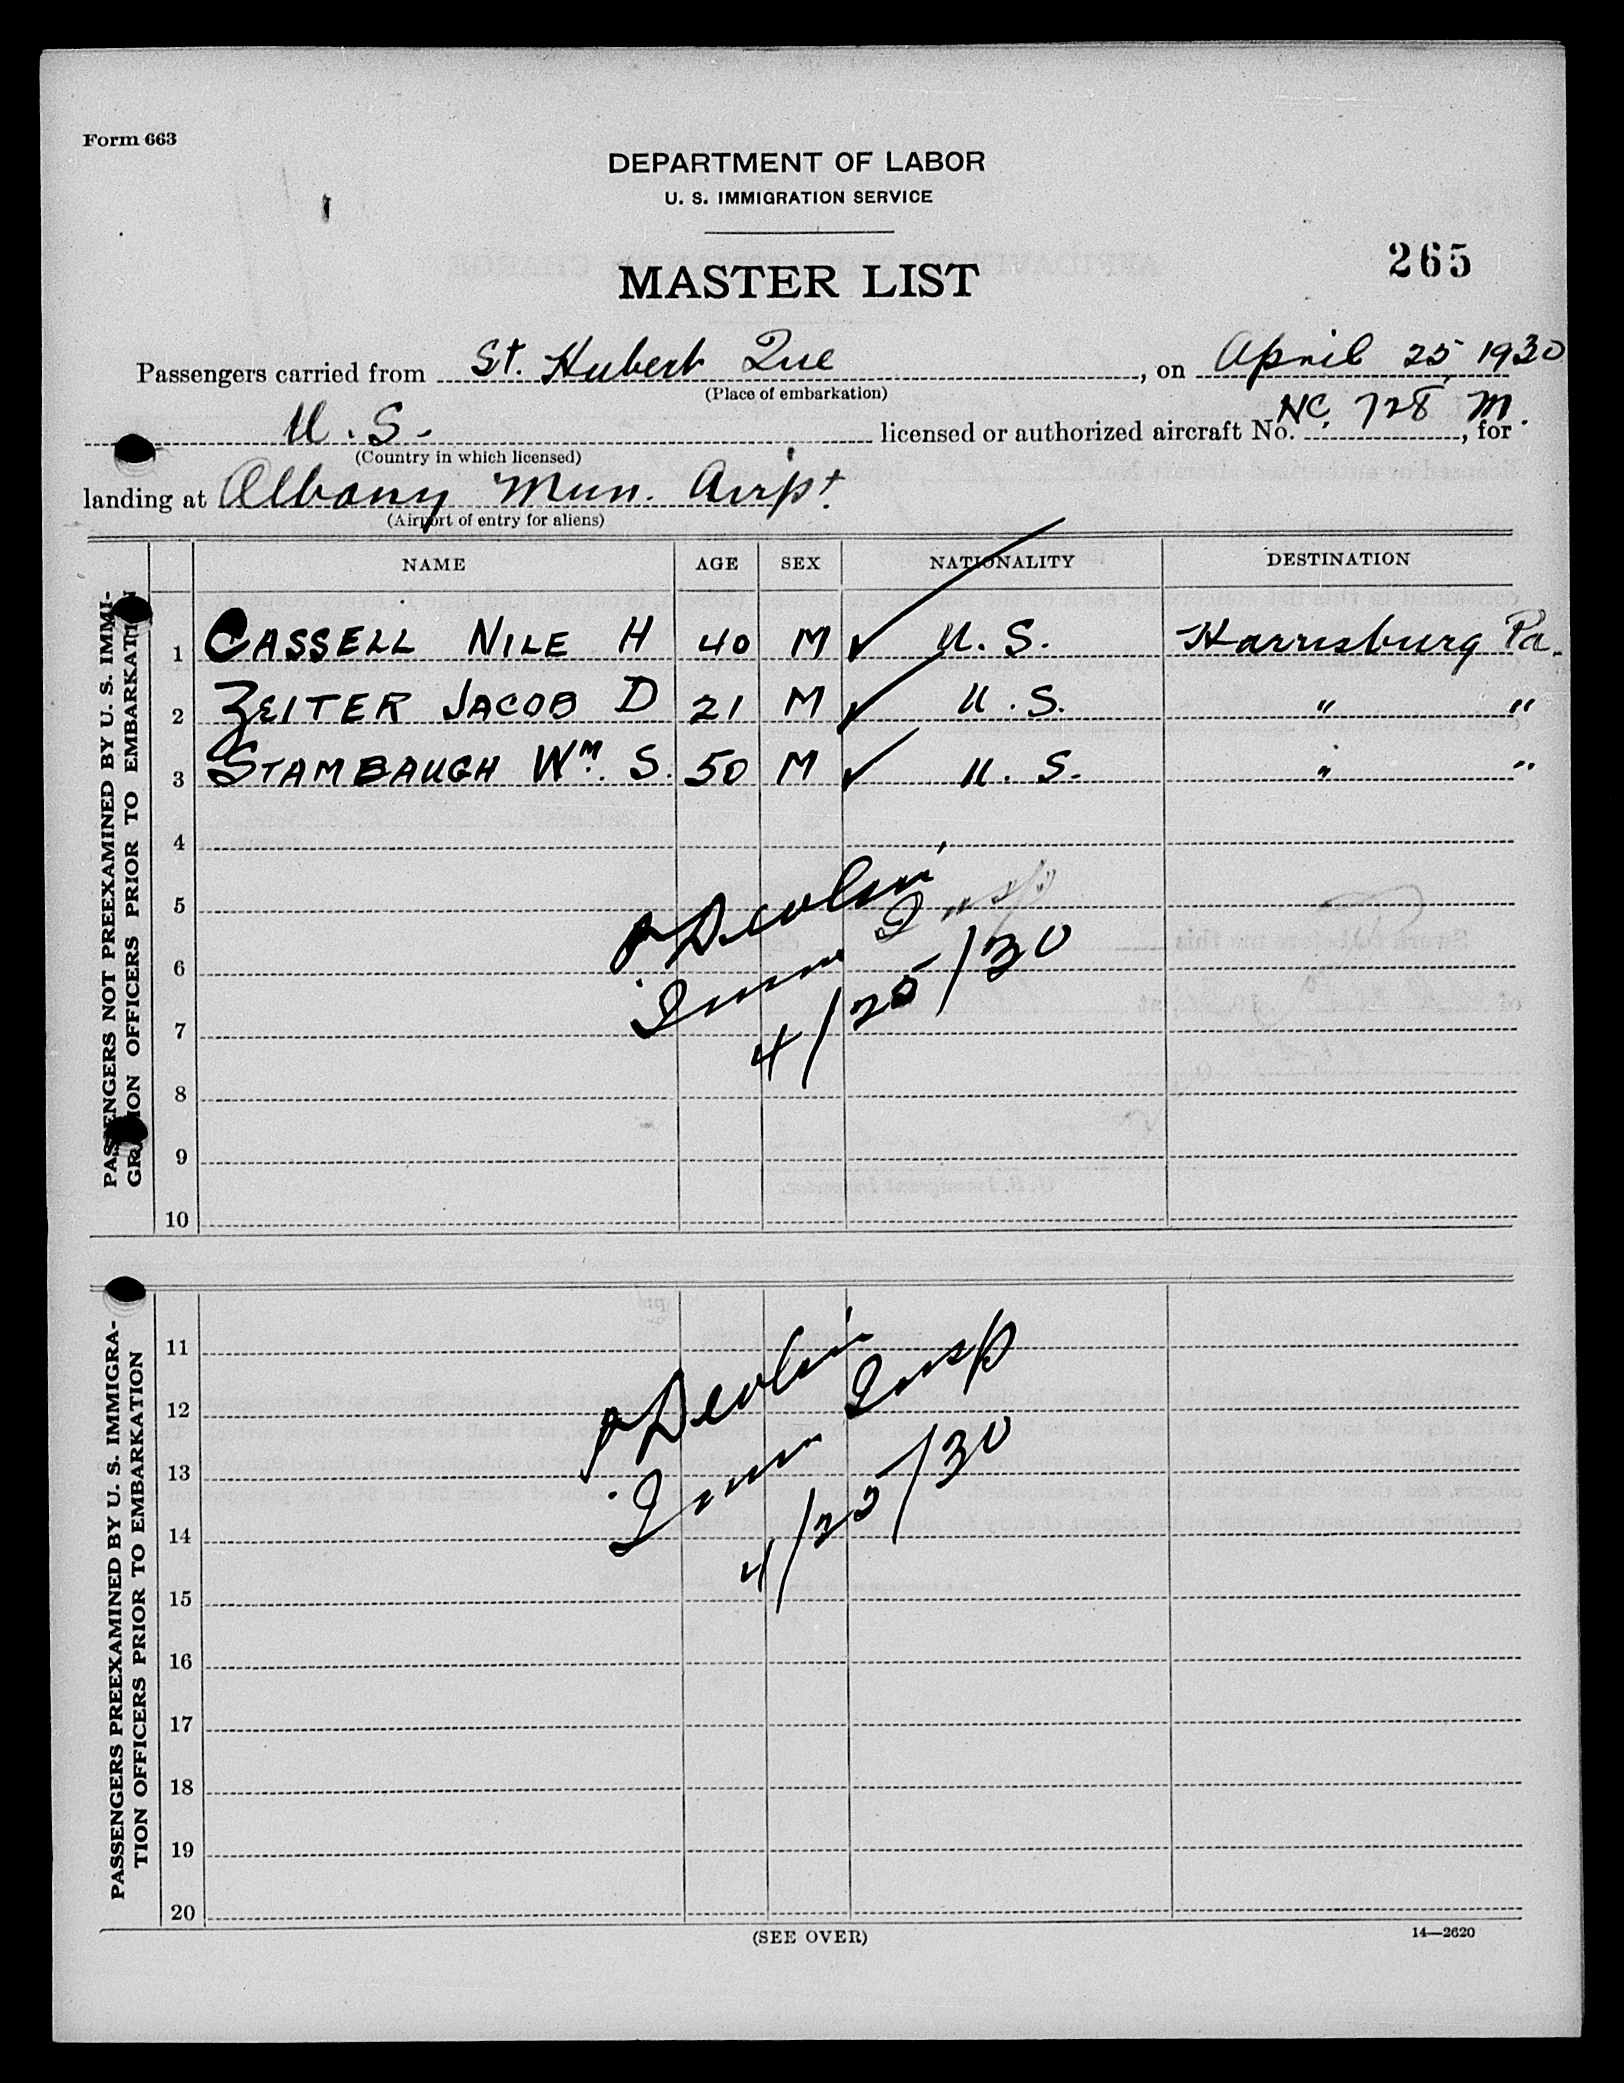 Form 663
DEPARTMENT OF LABOR
U. S. IMMIGRATION SERVICE
MASTER LIST
265
Passengers carried from St. Hubert Que, on April 25 1930
(Place of embarkation)
U. S. licensed or authorized aircraft No. NC. 728 M., for
(Country in which licensed)
landing at Albany Mun. Airpt.
(Airport of entry for aliens)
NAME AGE SEX NATIONALITY DESTINATION
PASSENGERS NOT PREEXAMINED BY U. S. IMMI-
GRATION OFFICERS PRIOR TO EMBARKATION
1 CASSELL NILE H 40 M ✓ U. S. Harrisburg Pa.
2 ZEITER JACOB D 21 M ✓ U. S. " "
3 STAMBAUGH Wm. S. 50 M ✓ U. S. " "
4
5
6
7
8
9
10
Devlin
Imm Insp
4/25/30
PASSENGERS PREEXAMINED BY U. S. IMMIGRA-
TION OFFICERS PRIOR TO EMBARKATION
11
12
13
14
15
16
17
18
19
20
Devlin
Imm Insp
4/25/30
(SEE OVER)
14—2620